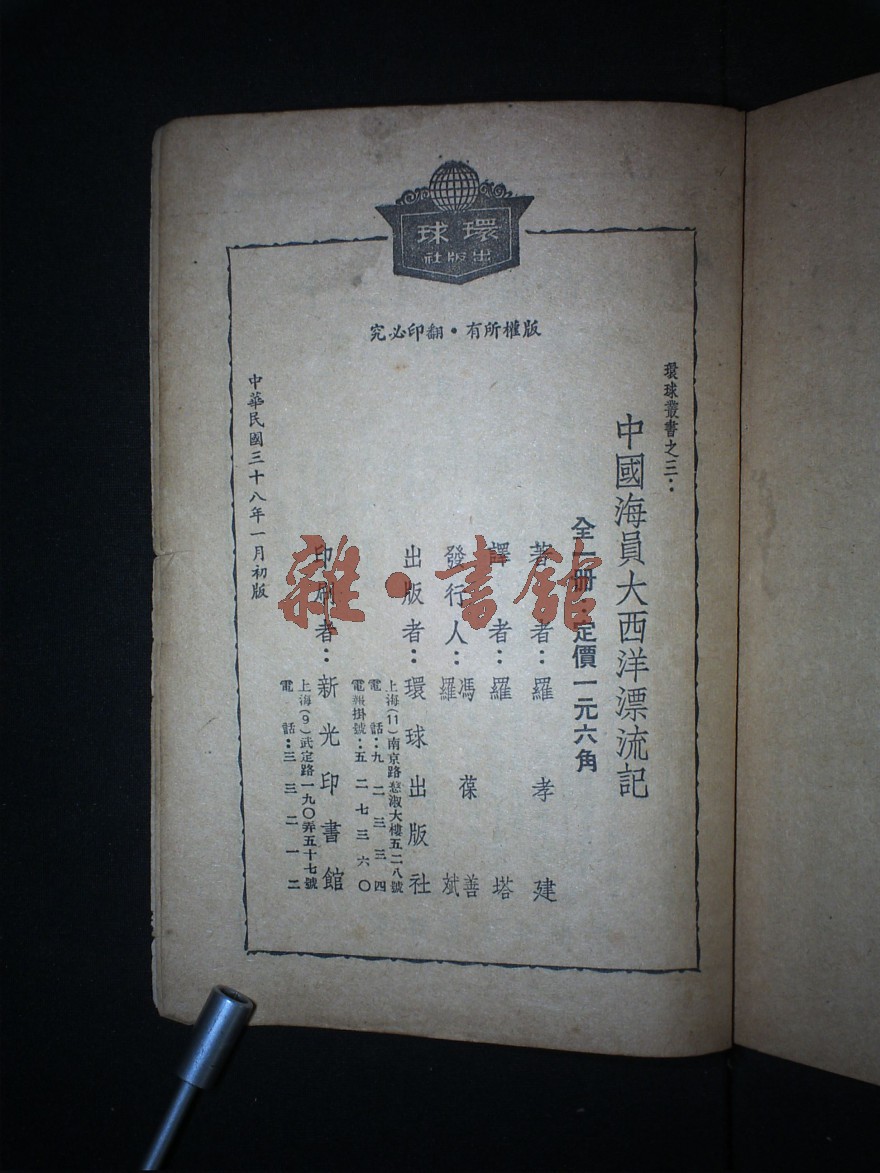 環球
出版社
版權所有・翻印必究
環球叢書之三：
中國海員大西洋漂流記
全一冊：定價一元六角
著者：羅孝建
譯者：羅塔
發行人：馮葆善
羅斌
出版者：環球出版社
上海(11)南京路慈淑大樓五二八號
電話：九二三三四
電報掛號：五二七三六〇
印刷者：新光印書館
上海(9)武定路一九〇弄五十七號
電話：三三二一二
中華民國三十八年一月初版
雜・書館